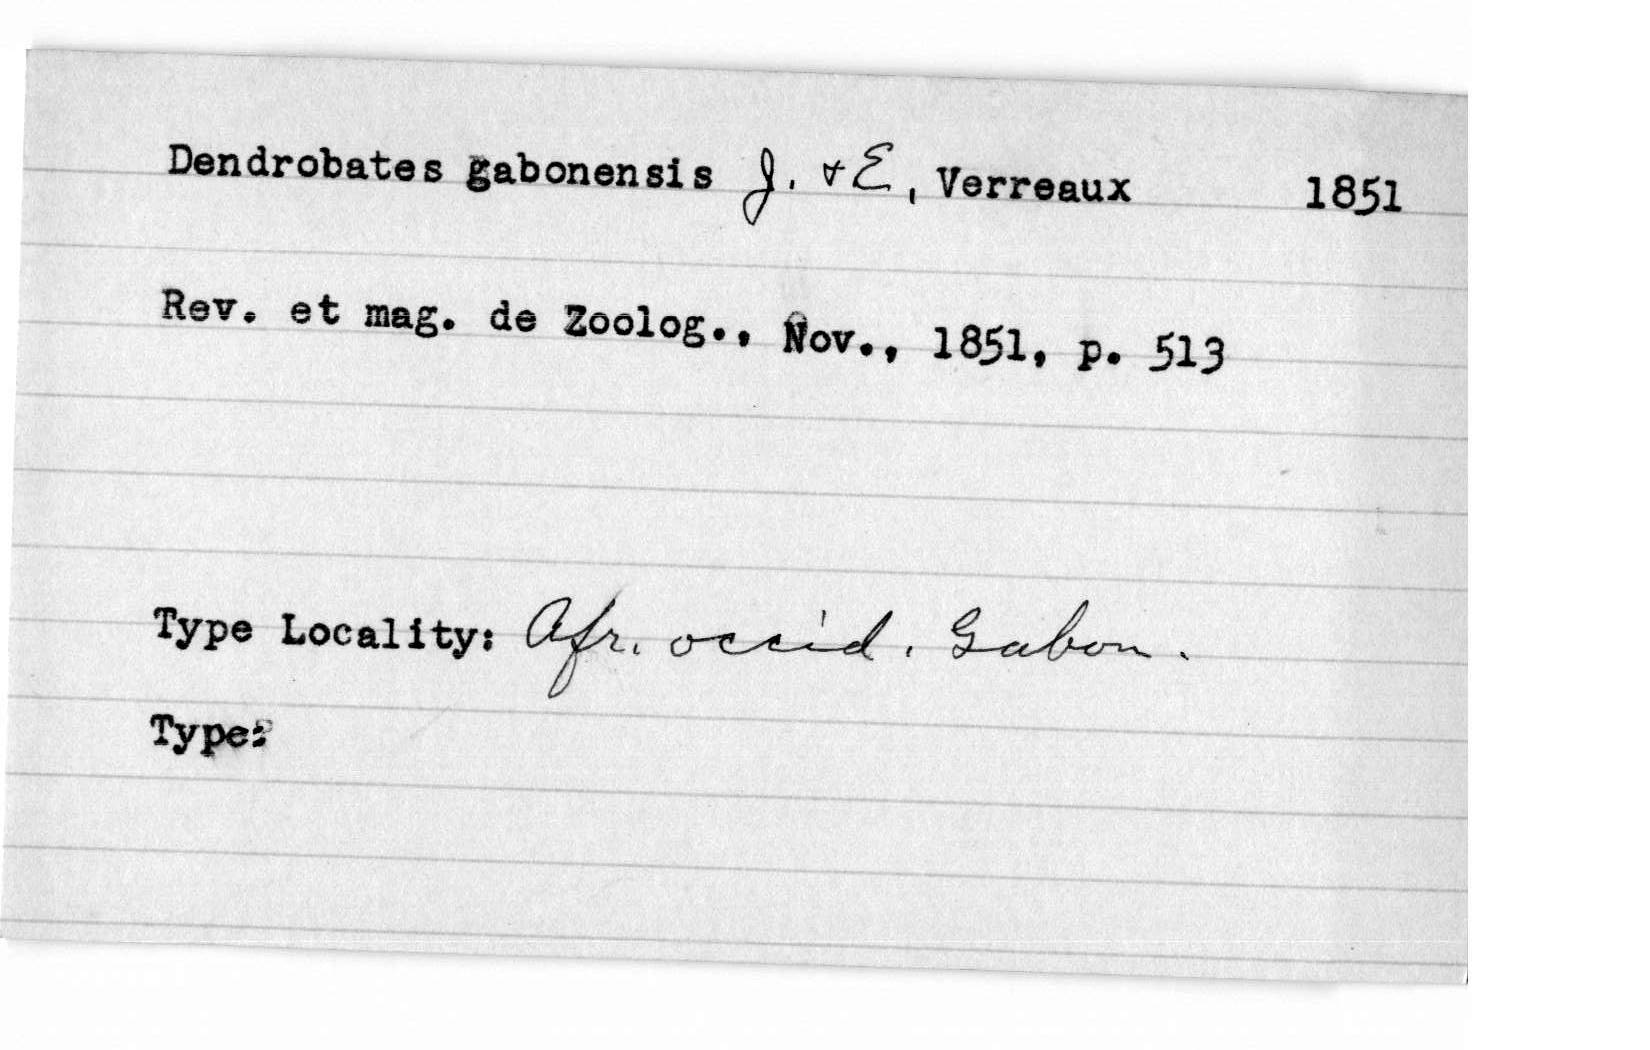 Dendrobates gabonensis J. & E., Verreaux 1851
Rev. et mag. de Zoolog., Nov., 1851, p. 513
Type Locality: Afr. occid. Gabon.
Type: